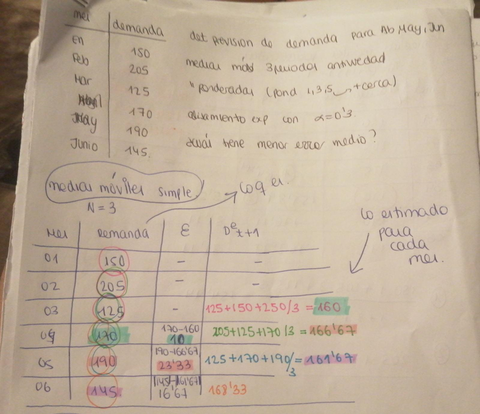 mes demanda det prevision de demanda para Ab, May, Jun
En 150 medias móvil 3 periodos antiguedad
Feb 205 " ponderadas (pond 1, 3, 5 + cerca)
Mar 125 exp con α=0'3
Abril 170 cuál tiene menor error medio?
May 190
Junio 145
medias móviles simple → coger
N = 3
Mes Demanda E De t+1 lo estimado para cada mes
01 150 - -
02 205 - -
03 125 - 125+150+250/3 = 160
04 170 170-160 10 205+125+170/3 = 166'67
05 190 190-166'67 23'33 125+170+190/3 = 161'67
06 145 |145-161'67| 16'67 168'33